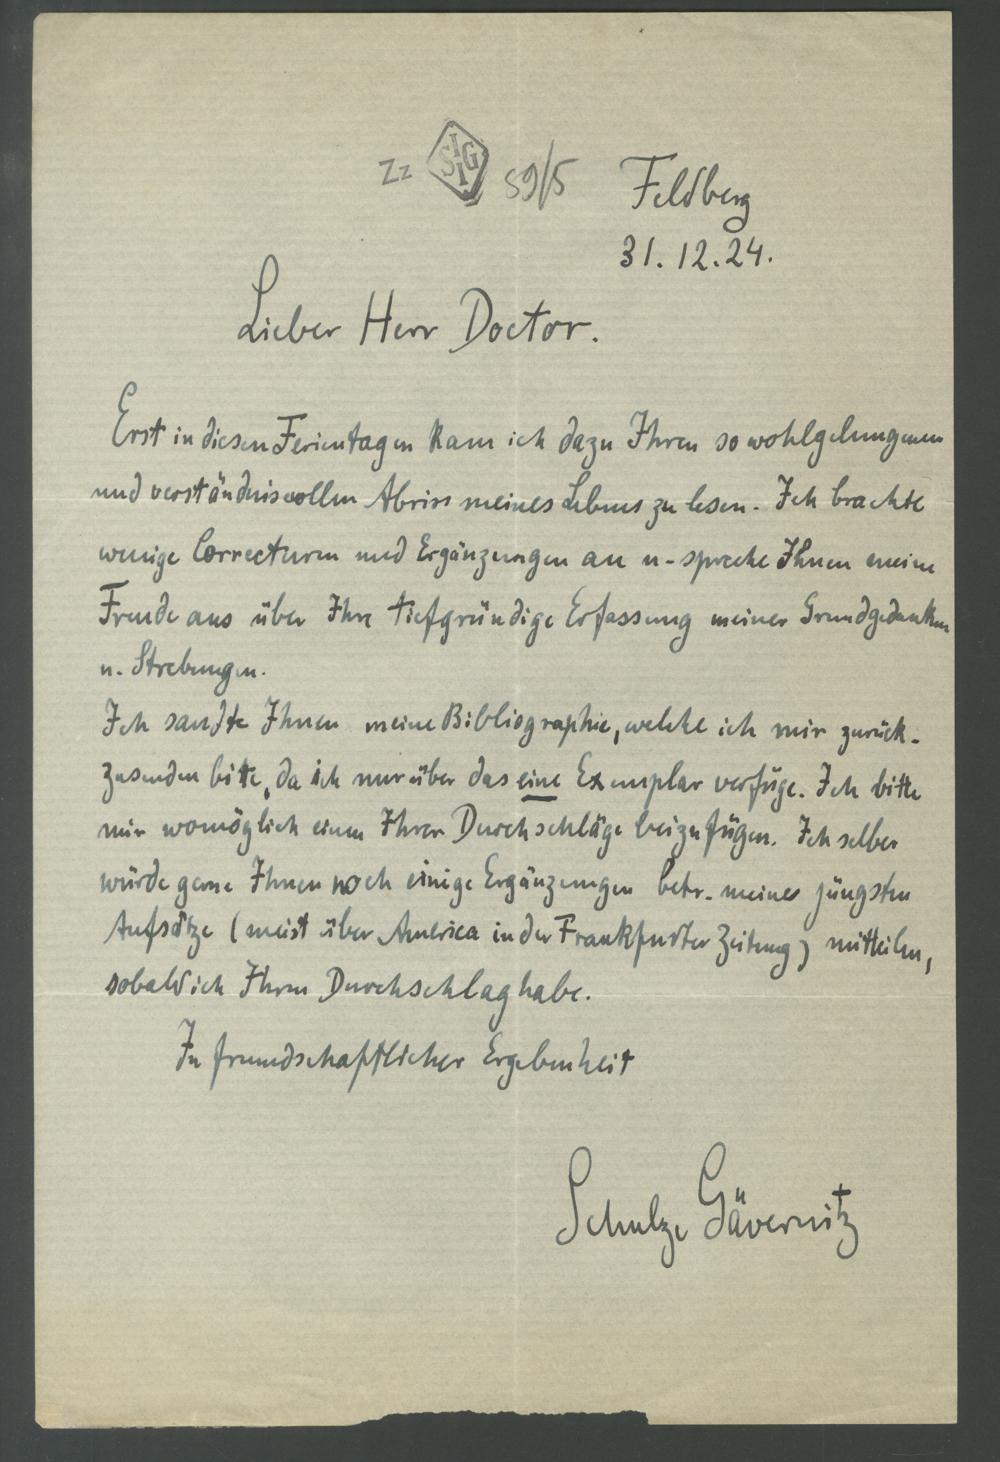 Zz SIGI 59/5 Feldberg
31.12.24.
Lieber Herr Doctor.
Erst in diesen Ferientagen kam ich dazu Ihren so wohlgelungenen
und verständnisvollen Abriss meines Lebens zu lesen. Ich brachte
wenige Correcturen und Ergänzungen an u. spreche Ihnen meine
Freude aus über Ihre tiefgründige Erfassung meiner Grundgedanken
u. Strebungen.
Ich sandte Ihnen meine Bibliographie, welche ich mir zurück-
zusenden bitte, da ich nur über das eine Exemplar verfüge. Ich bitte
mir womöglich einen Ihrer Durchschläge beizufügen. Ich selber
würde gerne Ihnen noch einige Ergänzungen betr. meines jüngsten
Aufsätze (meist über America in der Frankfurter Zeitung) mitteilen,
sobald ich Ihren Durchschlag habe.
In freundschaftlicher Ergebenheit
Schulze Gävernitz